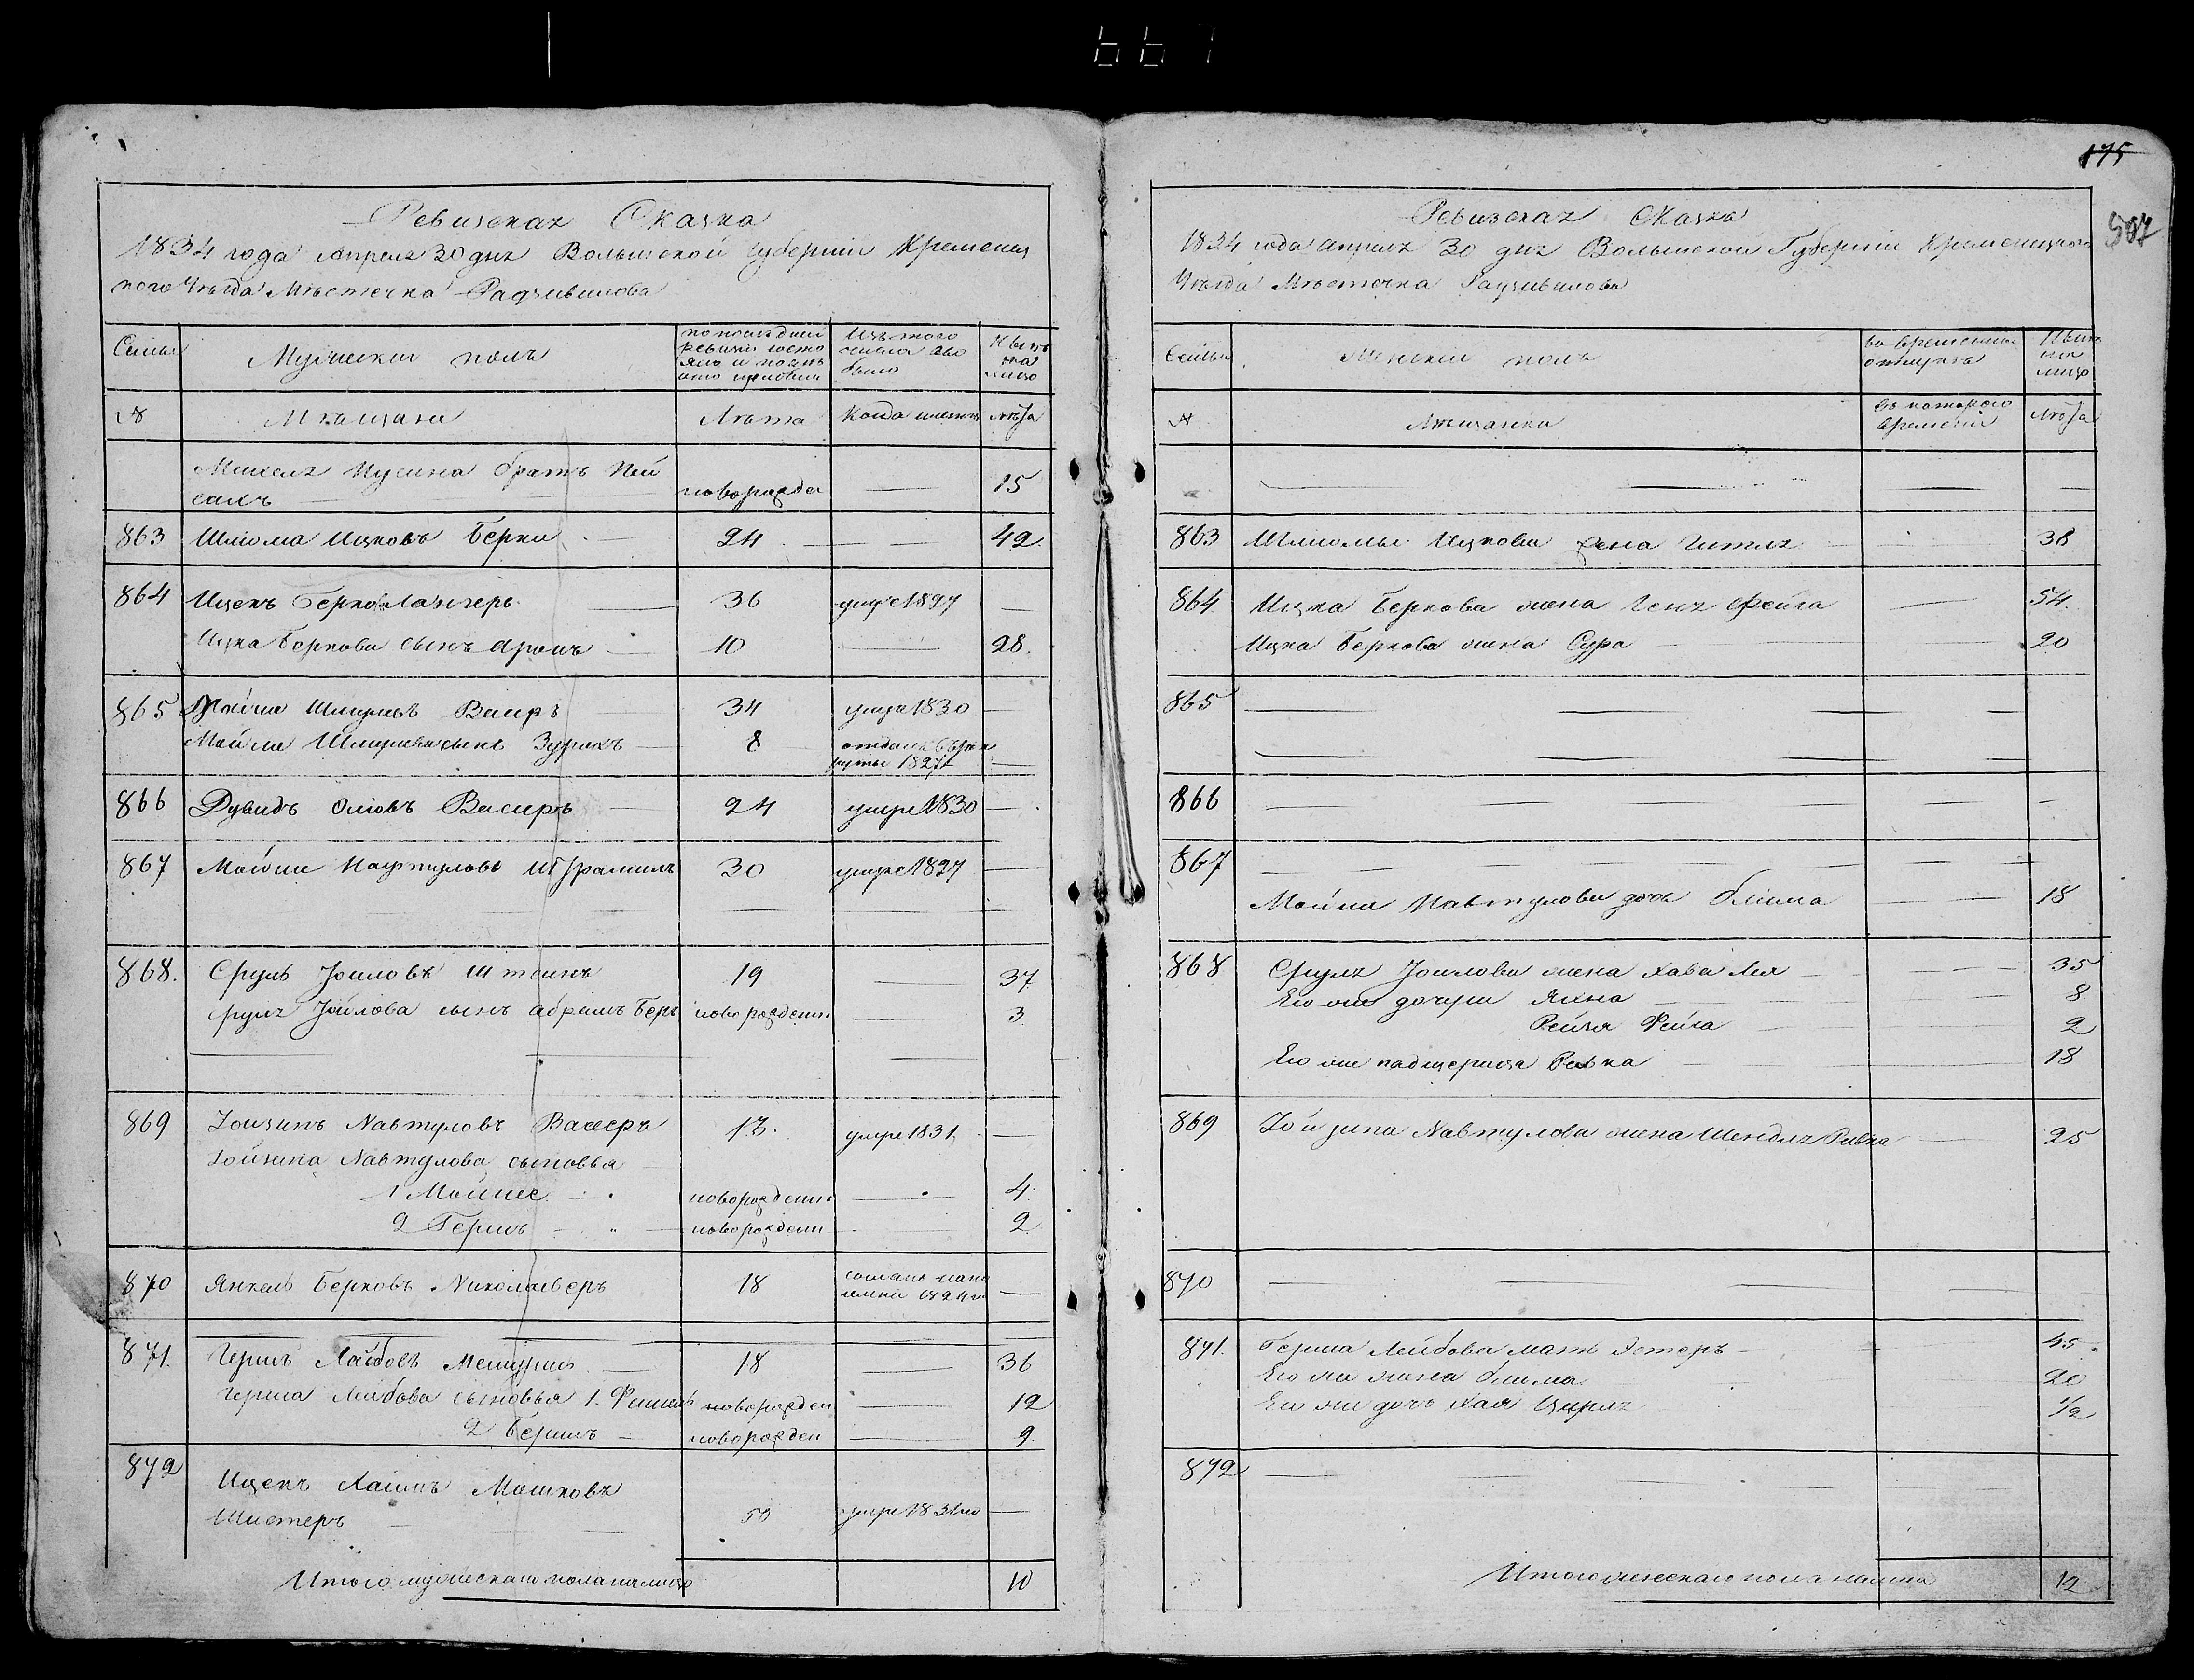 667
Ревизская Сказка
1834 года Апреля 30 дня Волынской Губерніи Кременец
кого Уезда Местечка Радзивилова
Семьи
Мужеский полъ
по последней
ревизіи состо
яло и после
Изъ того
числа
было
Ныне
на
лицо
№
Мещане
Лета
Когда именно
Лета
Михеля Мусина братъ Пей
сахъ
новорожден
—
15
863
Шлиома Ицковъ Берки
24
—
42
864
Ицекъ Берков Лангеръ
36
умре 1827
—
Ицка Беркова сынъ Аронъ
10
—
28
865
Мойше Шмулевъ Васеръ
34
умре 1830
—
Мойше Шмулева сынъ Зурахъ
8
отданъ въ рек
руты 1827
—
866
Дувидъ Васеръ
24
умре 1830
—
867
Мойше Нафтуловъ
30
умре 1827
—
868.
Сруль Йоиловъ Штеинъ
19
—
37
Сруля Йойлова сынъ Абрамъ Беръ
новорожденн
—
3
869
Зойзипъ Навтуловъ Васеръ
13
умре 1831
—
Зойзипа Навтулова сыновья
1 Мойше
новорожденн
—
4
2 Гершъ
новорожденн
2
870
Янкель Берковъ
18
—
871.
Гершъ Лейбовъ
18
—
36
Герша Лейбова сыновья 1. Фишель
новорожден
—
12
2 Бершъ
новорожден
—
9
872
Ицекъ Хаимъ Мошковъ
Шистеръ
50
умре 1831го
—
Итого мужескаго пола налицо
10
175
507
Ревизская Сказка
1834 года Апреля 30 дня Волынской Губерніи Кременецкого
Уезда Местечка Радзивилова
Семьи
Женскій полъ
во временной
отлучке
Ныне
на
лицо
№
Мещанки
съ которого
времени
Лета
863
Шлиомы Ицкова жена Гитля
38
864
Ицка Беркова жена Геня Фейга
54
Ицка Беркова жена Сура
20
865
866
867
Мойши Навтулова дочь Блима
18
868
Сруля Йоилова жена Хава Лея
35
Его же дочери Яхна
8
Рейзя Фейга
2
Его же падщерица Ревка
18
869
Зойзипа Навтулова жена Шендля Ривка
25
870
871.
Герша Лейбова мать Эстеръ
45
Его же жена Блима
20
Его же дочь Хая Цирля
1/2
872
Итого женскаго пола налицо
12